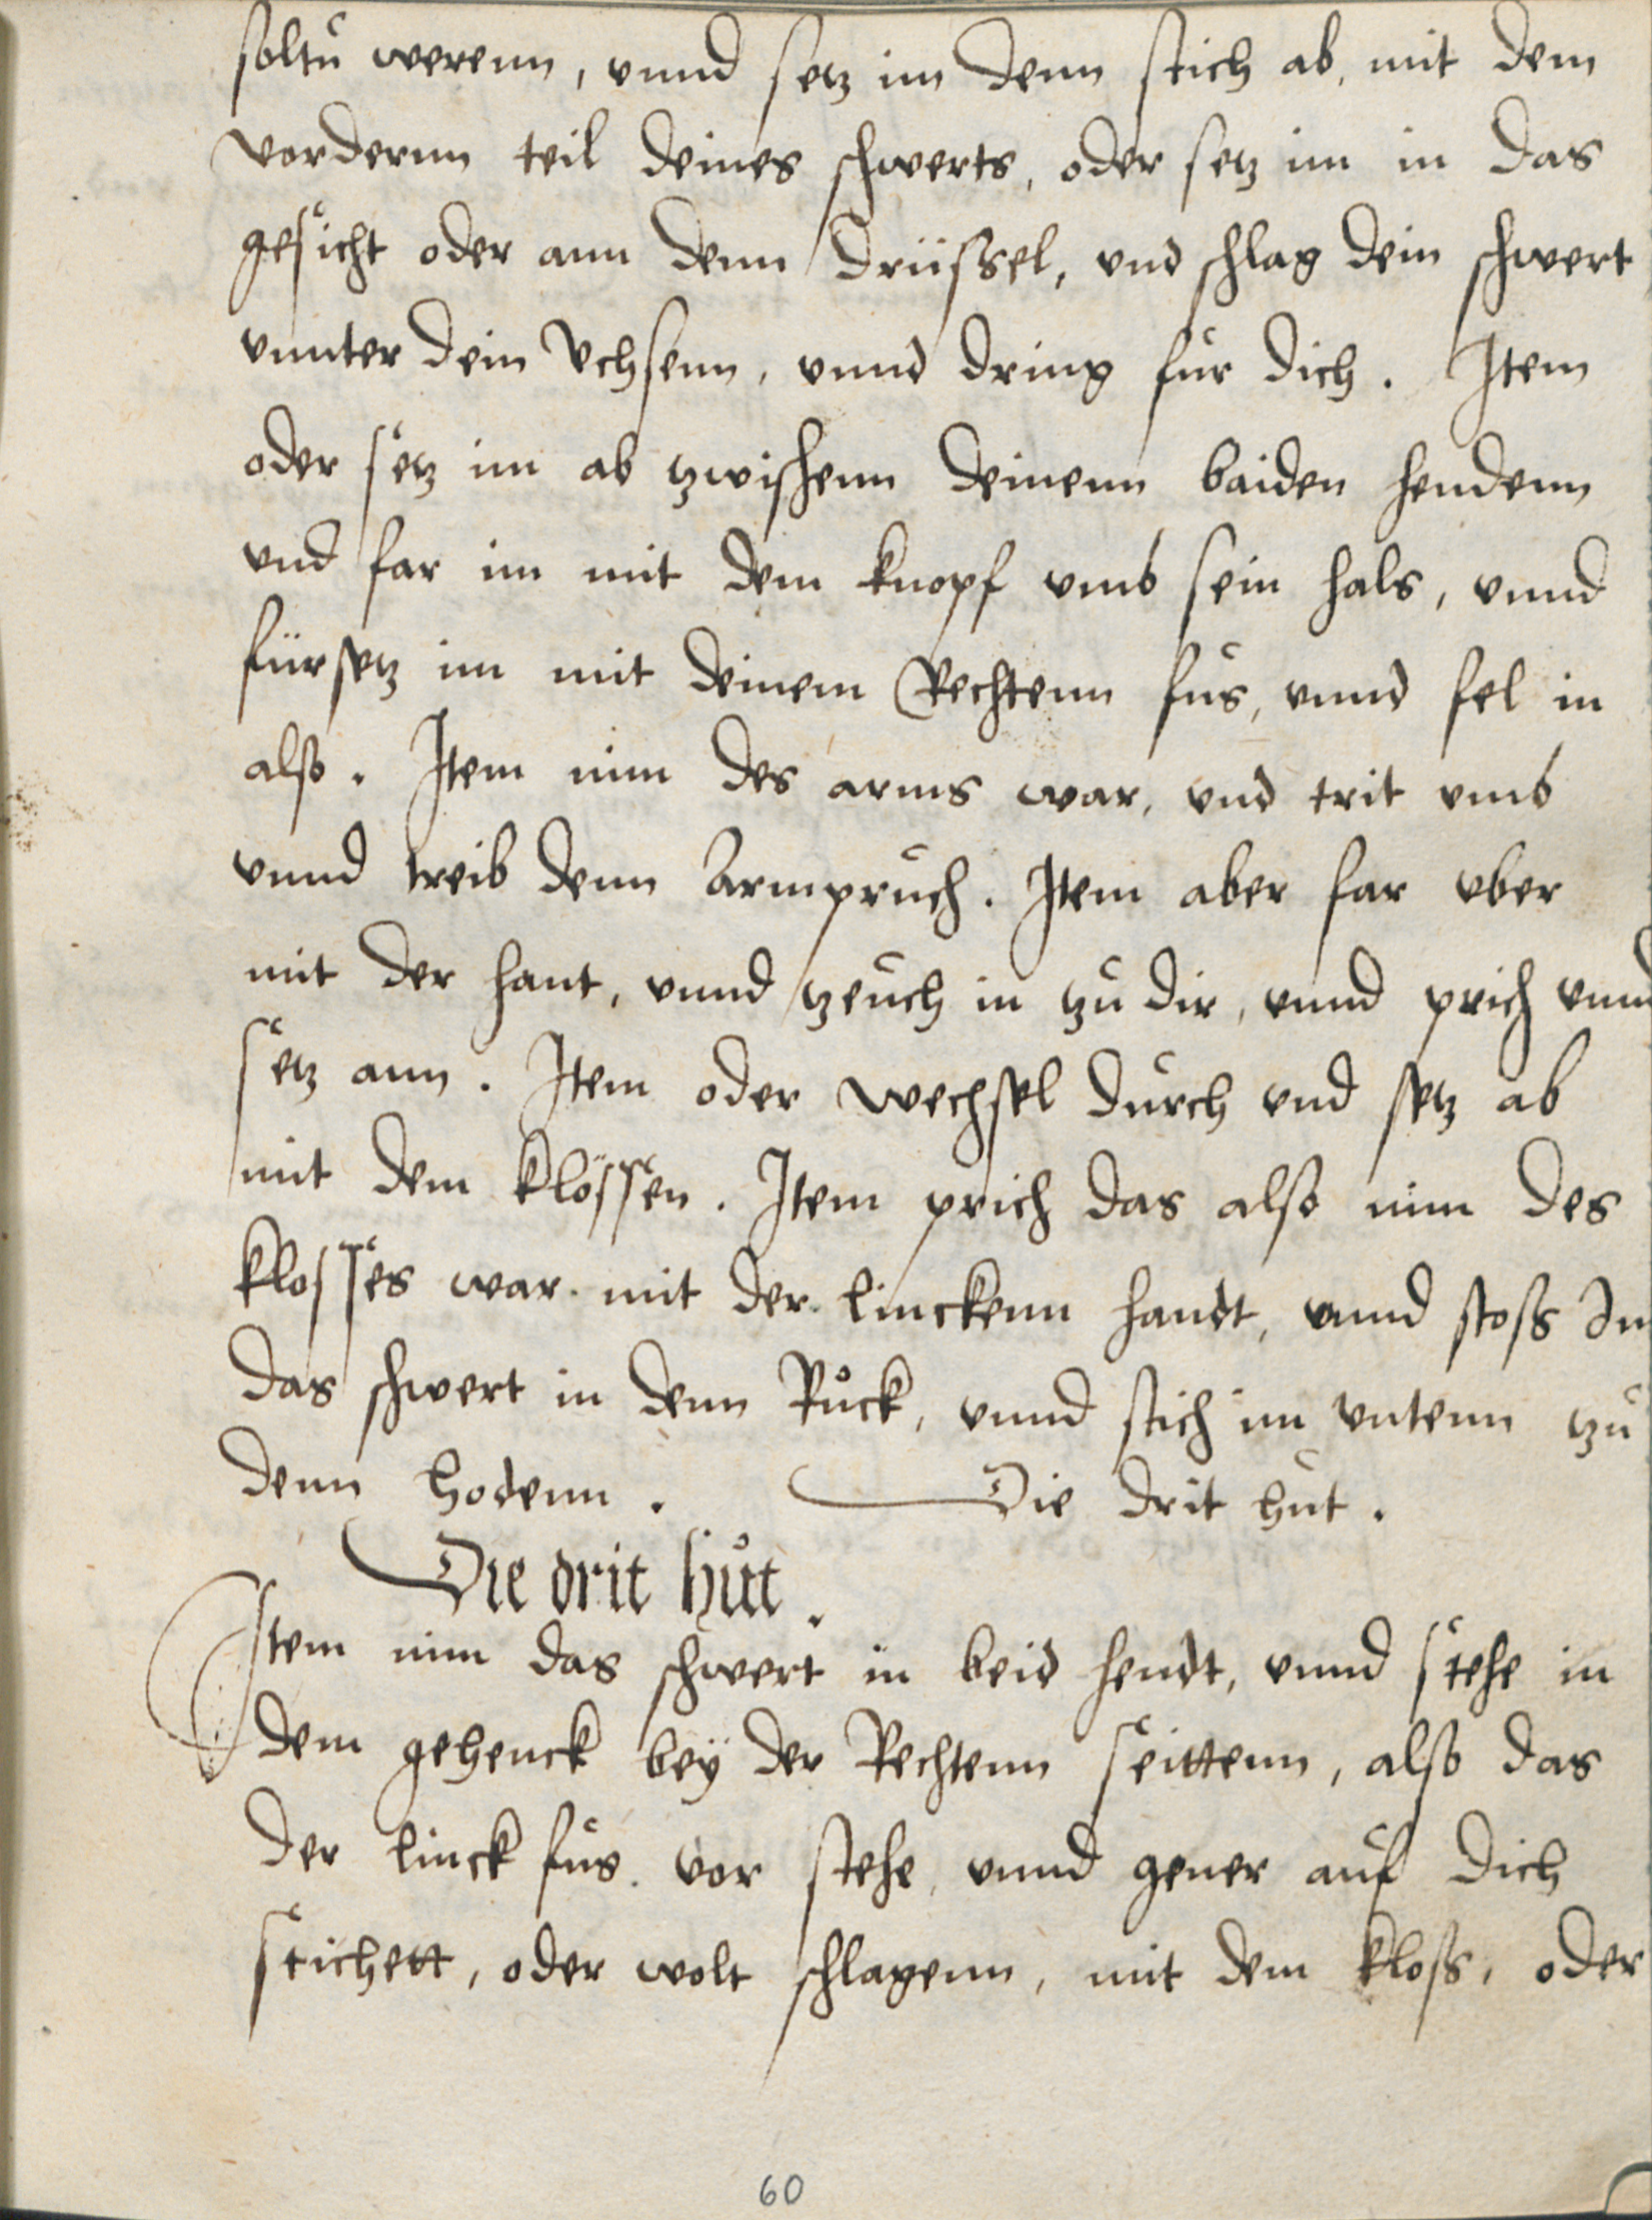 soltu werenn, vnnd setz im denn stich ab, mit dem
vordernn teil deines schwerts, oder setz im in das
gesicht oder ann denn drüssel, vnd schlag dein schwert
vnnter dein Vchsenn, vnnd dring für dich. Item
oder setz im ab tzwischenn deinenn baiden hendenn
vnd far im mit dem knopf vmb sein hals, vnnd
fürsetz im mit deinem Rechtenn fus, vnnd fel in
also. Item nim des arms war, vnd trit vmb
vnnd treib denn Armpruch. Item aber far vber
mit der hant, vnnd tzeuch in tzu dir, vnnd prich vnnd
setz ann. Item oder wechsel durch vnd setz ab
mit dem klössen. Item prich das also nim des
klosses war mit der linckenn handt, vnnd stoss In
das schwert in denn Růck, vnnd stich im vntenn tzu
denn hodenn. Die drit hut.
Die drit hůt.
Item nim das schwert in beid hendt, vnnd stehe in
dem gehenck beÿ der Rechtenn seittenn, also das
der linck fus vor stehe, vnnd gener auf dich
stichett, oder wolt schlagenn, mit dem kloss, oder
60